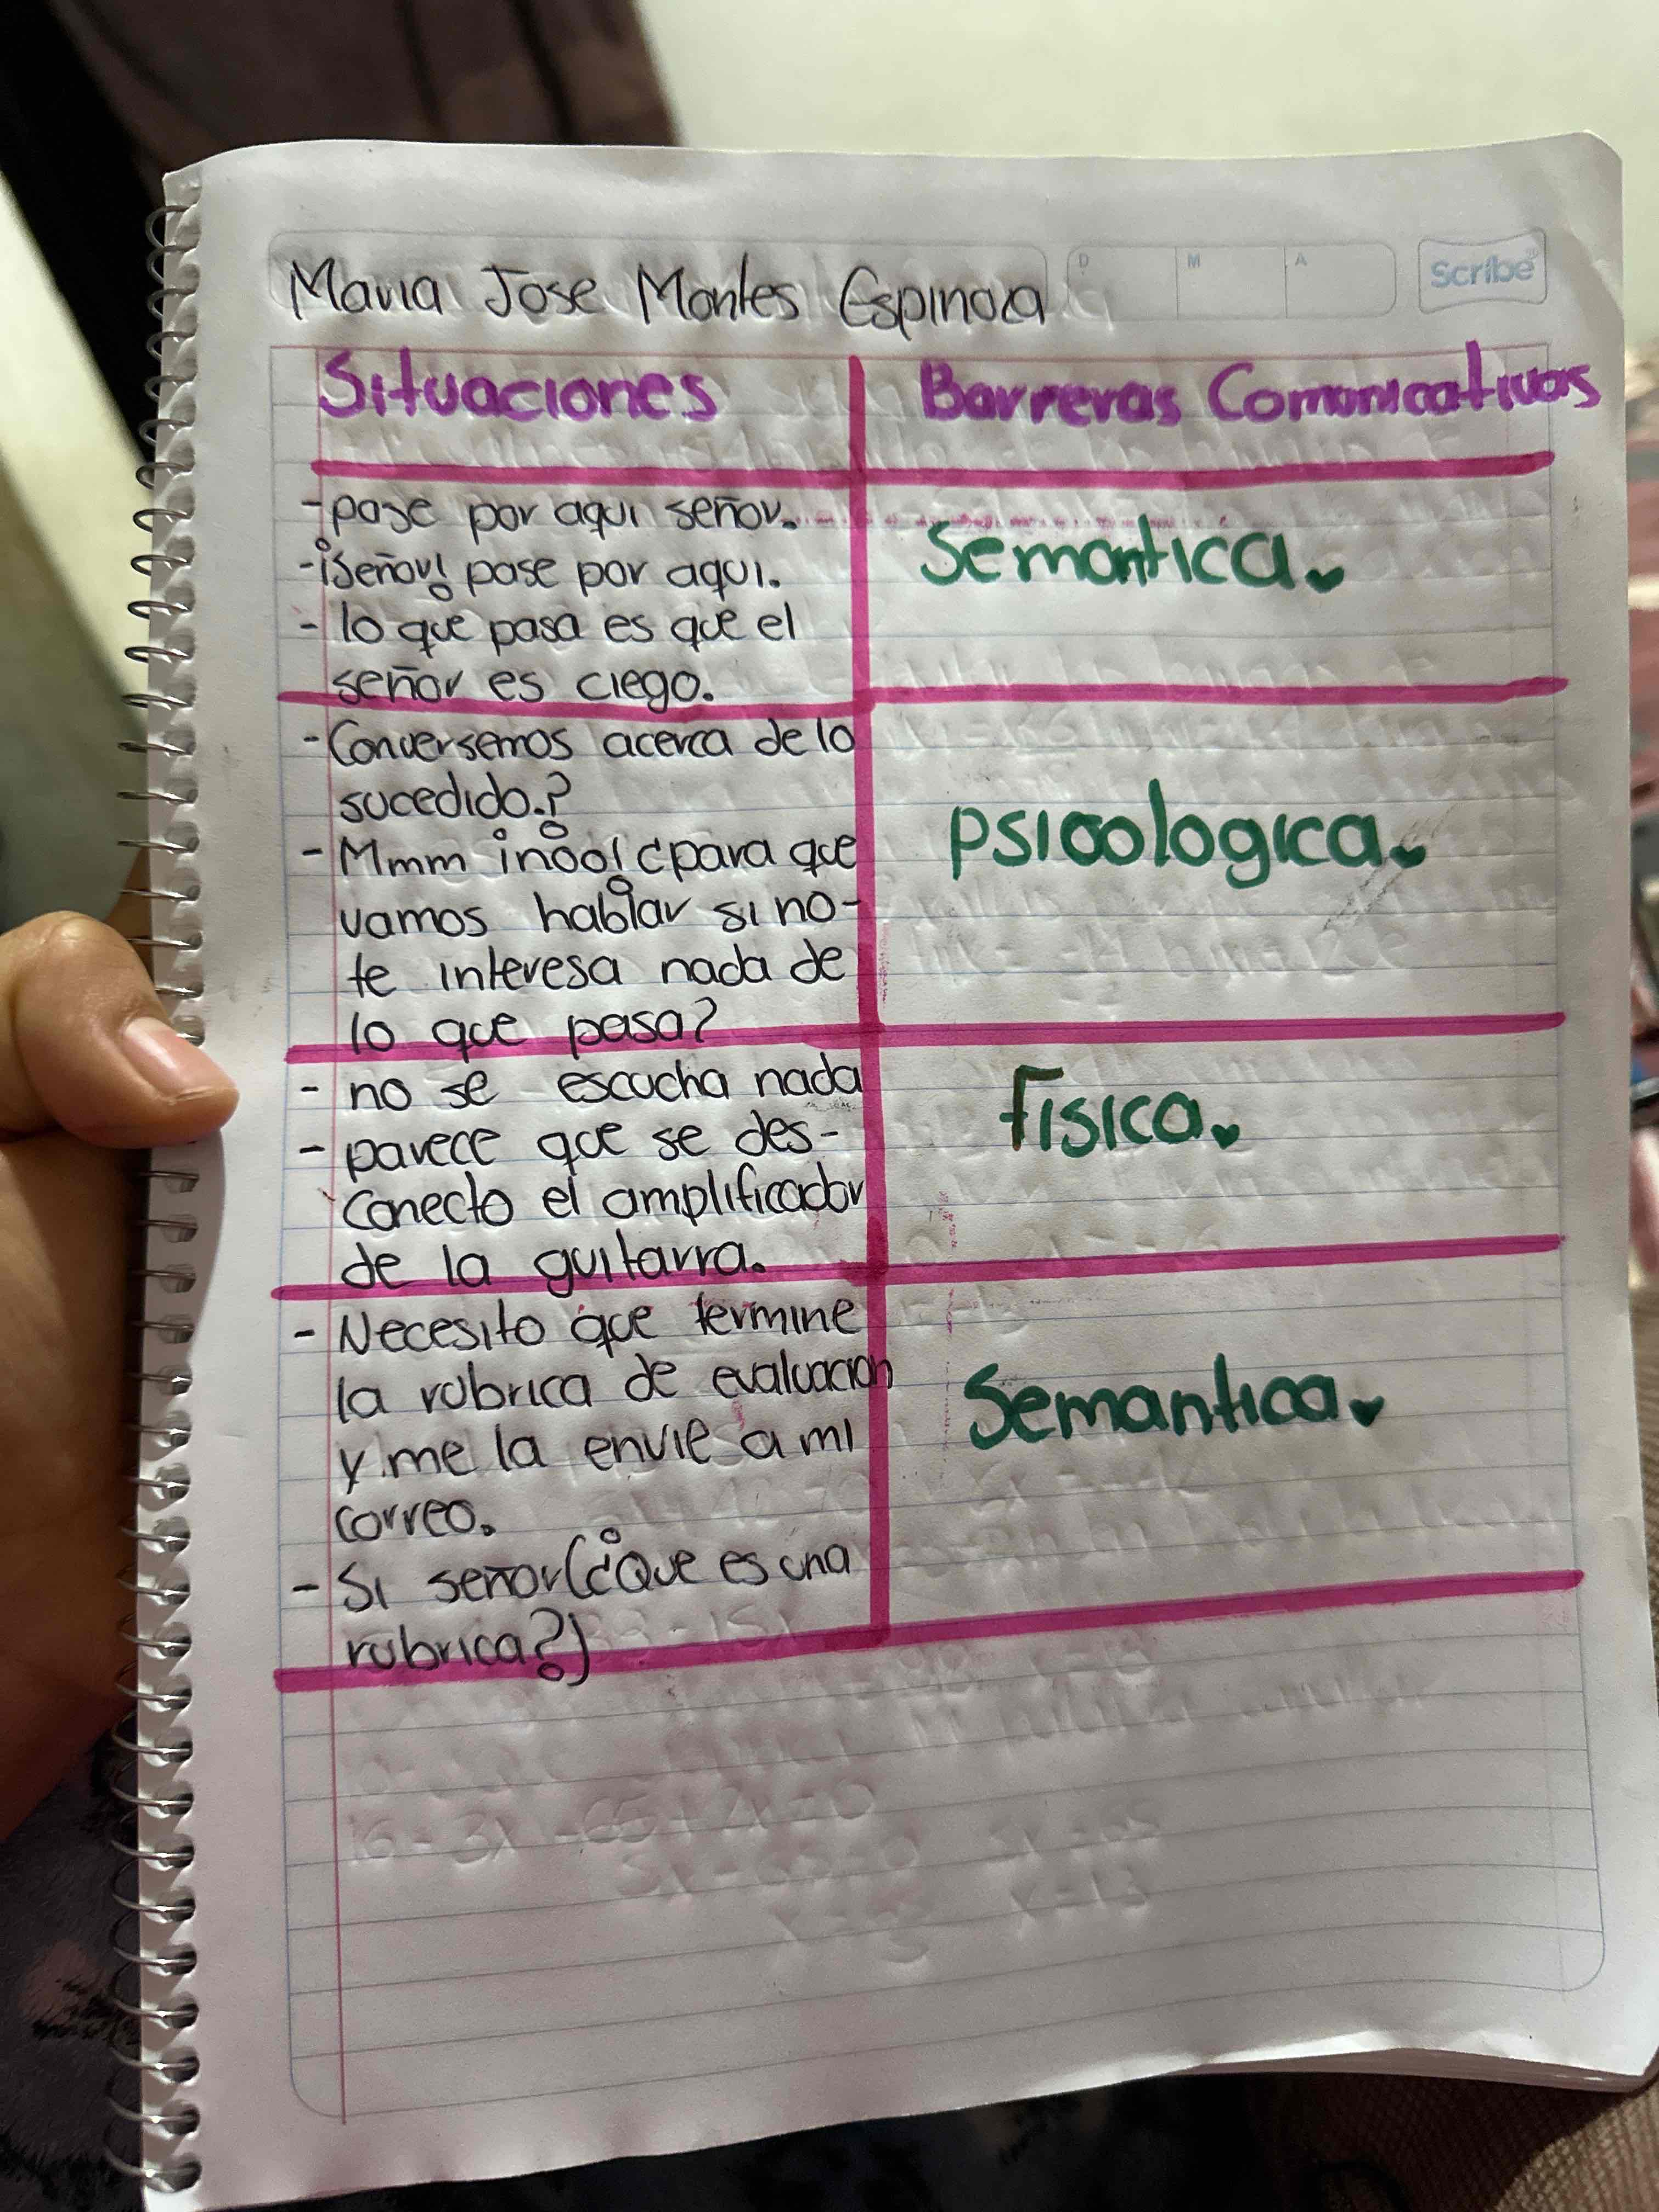 Maria Jose Montes Espinoza
D M A
Scribe
Situaciones
Barreras Comonicativas
- pase por aqui señor.
- ¡Señor! pase por aqui.
- lo que pasa es que el
señor es ciego.
Semantica.
- Conversemos acerca de lo
sucedido.?
- Mmm ¡noo! ¿para que
vamos hablar si no-
te interesa nada de
lo que pasa?
psicologica.
- no se escucha nada
- parece que se des-
conecto el amplificador
de la guitarra.
Fisica.
- Necesito que termine
la rubrica de evaluacion
y me la envie a mi
correo.
- Si señor (¿Que es una
rubrica?)
Semantica.